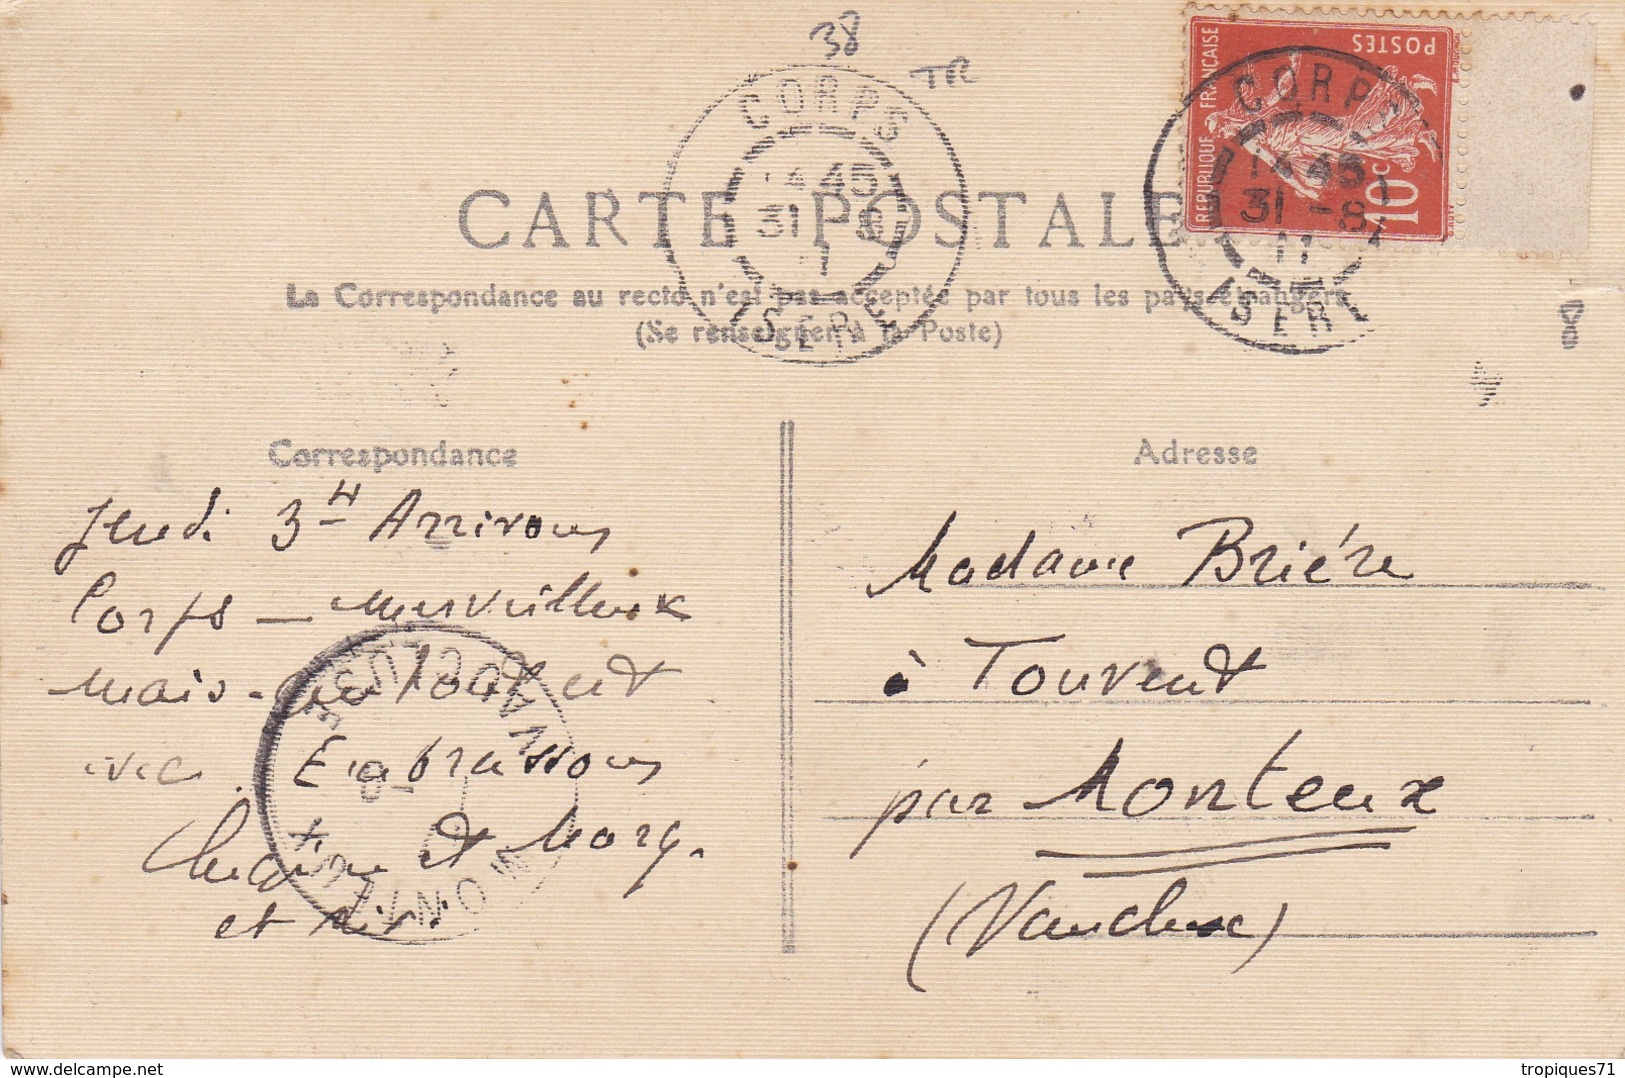 38
TR
CORPS
14 45
31 -8
11
ISERE
RÉPUBLIQUE FRANÇAISE
POSTES
10c
CORPS
14 45
31 -8
11
ISERE
CARTE POSTALE
La Correspondance au recto n'est pas acceptée par tous les pays étrangers
(Se renseigner à la Poste)
Correspondance
Jeudi 3H Arrivons
Corps – merveilleux
mais
Embrassons
et
et
MONTEUX
VAUCLUSE
Adresse
Madame Briére
à Tourvent
par Monteux
(Vaucluse)
delcampe.net
tropiques71